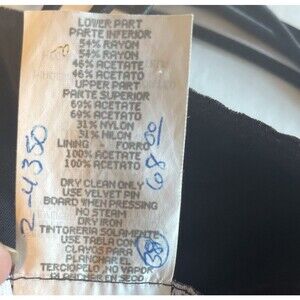 LOWER PART
PARTE INFERIOR
54% RAYON
54% RAYON
46% ACETATE
46% ACETATO
UPPER PART
PARTE SUPERIOR
69% ACETATE
69% ACETATO
31% NYLON
31% NILON
LINING - FORRO
100% ACETATE
100% ACETATO
DRY CLEAN ONLY
USE VELVET PIN
BOARD WHEN PRESSING
NO STEAM
DRY IRON
TINTORERIA SOLAMENTE
USE TABLA CON
CLAVOS PARA
PLANCHAR EL
TERCIOPELO, NO VAPOR
PLANCHAR EN SECO
2-4350
68.00